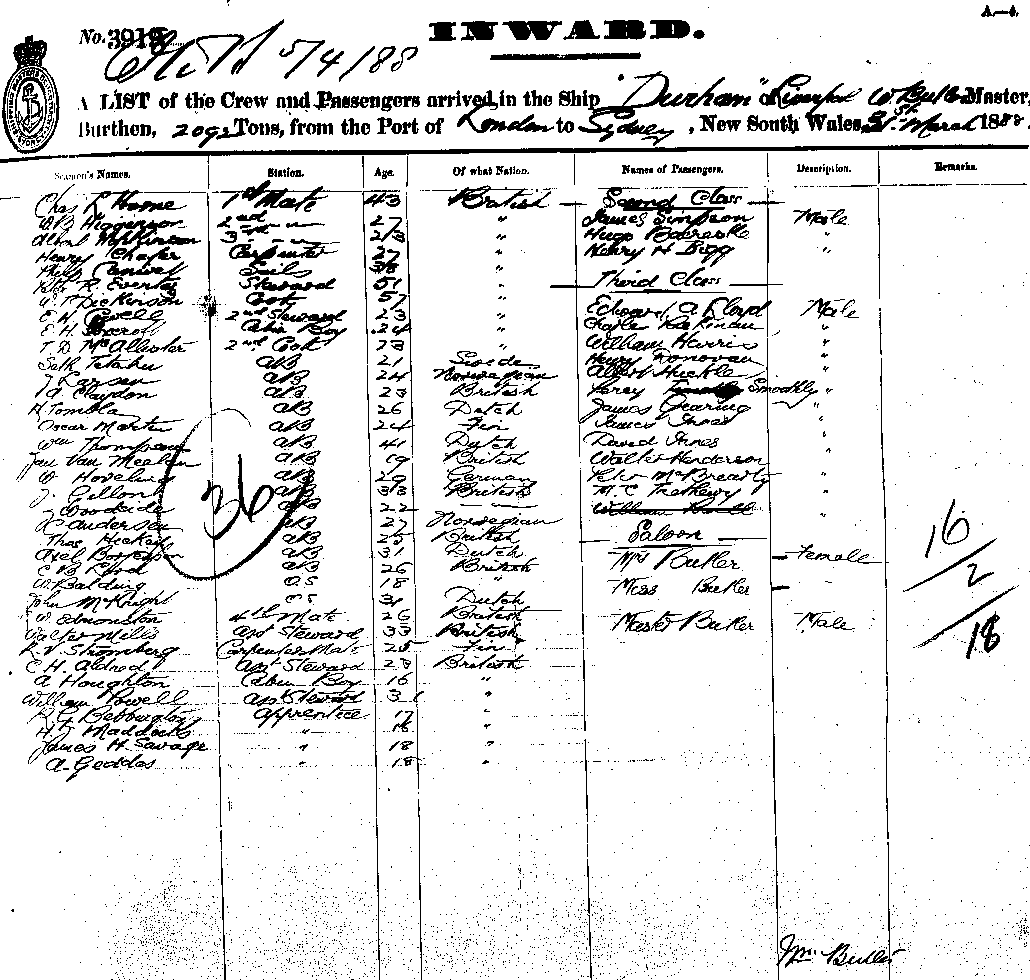 A.—4.
INWARD.
No. 3918
5/4/88
A LIST of the Crew and Passengers arrived in the Ship "Durham" of Liverpool W. Butler Master,
Burthen, 2092 Tons, from the Port of London to Sydney, New South Wales, 31st March 1888.
Seamen's Names. Station. Age. Of what Nation. Names of Passengers. Description. Remarks.
Chas R Horne 1st Mate 43 British Second Class
W.B. Higginson 2nd 27 " James Simpson Male
Albert Hopkinson 3rd " Hugo "
Henry Chafer Carpenter 27 " Henry H Bigg "
Philip Sails 38 "
Robt R. Steward 51 " Third Class
W. Dickinson Cook 57 "
E.H. Powell 2nd Steward 23 " Edward A Floyd Male
E.H. Cabin Boy 24 " Charles "
T.D. McAllister 2nd Cook 23 " William Harris "
AB 21 Swede Henry Donovan "
J. Larsen AB 24 Norwegian Albert Huckle "
A. Claydon AB 23 British Percy Smoothly "
H. Tombla AB 26 Dutch James Gearing "
Oscar Martin AB 24 Fin James Innes "
Wm Thompson AB 41 Dutch David Innes "
Jan Van AB 19 British Walter Henderson "
W. AB 29 German Peter "
J. Gillon AB 33 British M. C "
J. Woodside AB 22 — William "
Andersen AB 27 Norwegian
Thos Hickey AB 25 British Saloon
Axel AB 31 Dutch Mrs Butler Female
C.B. AB 26 British
W. Balding OS 18 " Miss Butler —
John McKnight OS 31 Dutch
W. Edmonston 4th Mate 26 British Mastr Butler Male
Walter Mills Asst Steward 33 British
R.V. Stromberg Carpenters Mate 25 Fin
C.H. Aldred Asst Steward 23 British
A Houghton Cabin Boy 16 "
William Powell Asst Steward 31 "
R.G. Bebbington Apprentice 17 "
H.J. Maddocks " 16 "
James H. Savage " 18 "
A. Geddes " 18 "
36
16
2
18
Wm Butler